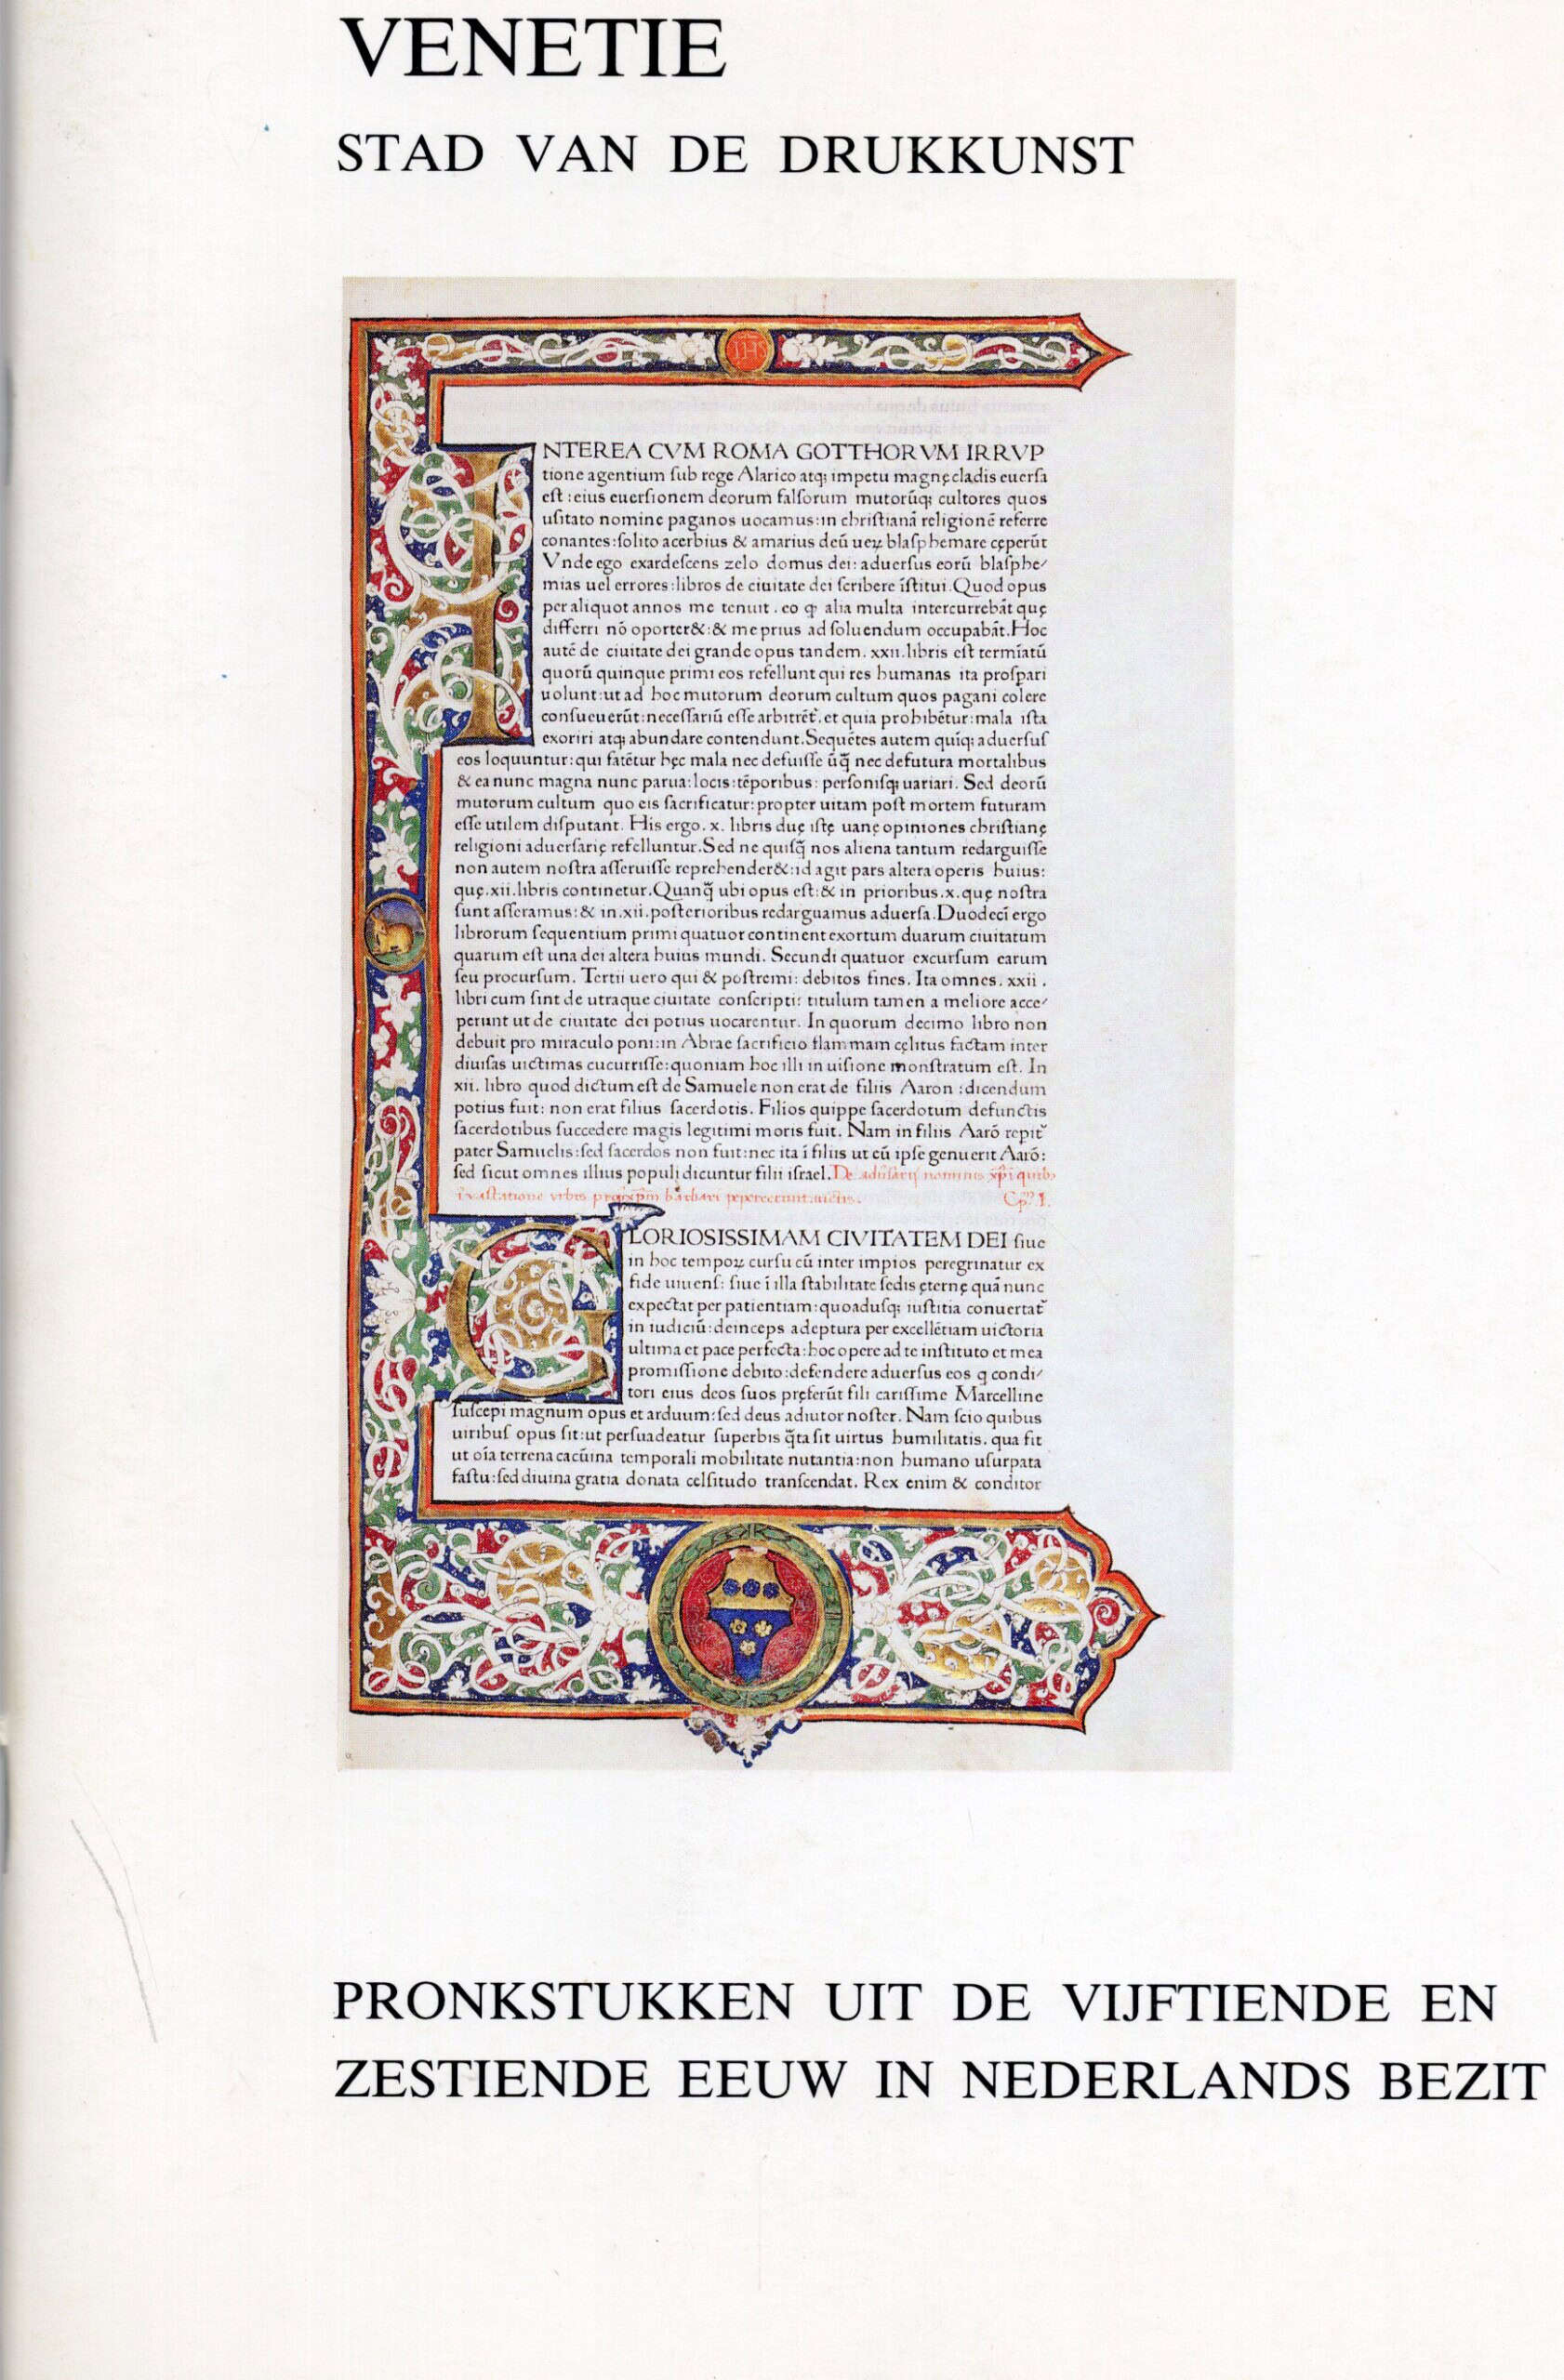 VENETIE
STAD VAN DE DRUKKUNST
IHS
INTEREA CVM ROMA GOTTHORVM IRRVP
tione agentium ſub rege Alarico atq; impetu magnę cladis euerſa
eſt : eius euerſionem deorum falſorum mutorūq; cultores quos
uſitato nomine paganos uocamus: in chriſtianā religionē referre
conantes: ſolito acerbius & amarius deū ueꝝ blaſphemare cęperūt
Vnde ego exardeſcens zelo domus dei: aduerſus eorū blaſphe⸗
mias uel errores: libros de ciuitate dei ſcribere īſtitui. Quod opus
per aliquot annos me tenuit . eo ꝙ alia multa intercurrebāt quę
differri nō oporter&: & me prius ad ſoluendum occupabāt. Hoc
autē de ciuitate dei grande opus tandem . xxii. libris eſt termīatū
quorū quinque primi eos refellunt qui res humanas ita proſpari
uolunt: ut ad hoc mutorum deorum cultum quos pagani colere
conſueuerūt: neceſſariū eſſe arbitrēt. et quia prohibētur: mala iſta
exoriri atq; abundare contendunt. Sequētes autem quīq; aduerſuſ
eos loquuntur: qui fatētur hęc mala nec defuiſſe ūq̄ nec defutura mortalibus
& ea nunc magna nunc parua: locis: tēporibus: perſoniſq; uariari. Sed deorū
mutorum cultum quo eis ſacrificatur: propter uitam poſt mortem futuram
eſſe utilem diſputant. His ergo. x. libris duę iſtę uanę opiniones chriſtianę
religioni aduerſarię refelluntur. Sed ne quiſq̄ nos aliena tantum redarguiſſe
non autem noſtra aſſeruiſſe reprehender&: id agit pars altera operis huius:
quę. xii. libris continetur. Quanq̄ ubi opus eſt: & in prioribus. x. quę noſtra
ſunt aſſeramus: & in. xii. poſterioribus redarguamus aduerſa. Duodecī ergo
librorum ſequentium primi quatuor continent exortum duarum ciuitatum
quarum eſt una dei altera huius mundi. Secundi quatuor excurſum earum
ſeu procurſum. Tertii uero qui & poſtremi: debitos fines. Ita omnes. xxii .
libri cum ſint de utraque ciuitate conſcripti: titulum tamen a meliore acce⸗
perunt ut de ciuitate dei potius uocarentur. In quorum decimo libro non
debuit pro miraculo poni: in Abrae ſacrificio flammam cęlitus factam inter
diuiſas uictimas cucurriſſe: quoniam hoc illi in uiſione monſtratum eſt. In
xii. libro quod dictum eſt de Samuele non erat de filiis Aaron : dicendum
potius fuit: non erat filius ſacerdotis. Filios quippe ſacerdotum defunctis
ſacerdotibus ſuccedere magis legitimi moris fuit. Nam in filiis Aarō repit᷑
pater Samuelis: ſed ſacerdos non fuit: nec ita ī filiis ut eū ipſe genuerit Aarō:
ſed ſicut omnes illius populi dicuntur filii iſrael. De nominis xp̄i
vrbis barbari pepercerunt Cp̄. I.
GLORIOSISSIMAM CIVITATEM DEI ſiue
in hoc tempoꝝ curſu cū inter impios peregrinatur ex
fide uiuenſ: ſiue ī illa ſtabilitate ſedis ęternę quā nunc
expectat per patientiam: quoaduſq; iuſtitia conuertat᷑
in iudiciū: deinceps adeptura per excellētiam uictoria
ultima et pace perfecta: hoc opere ad te inſtituto et mea
promiſſione debito: defendere aduerſus eos q condi⸗
tori eius deos ſuos pręferūt fili cariſſime Marcelline
ſuſcepi magnum opus et arduum: ſed deus adiutor noſter. Nam ſcio quibus
uiribuſ opus ſit: ut perſuadeatur ſuperbis q̄ta ſit uirtus humilitatis. qua fit
ut oīa terrena cacūina temporali mobilitate nutantia: non humano uſurpata
faſtu: ſed diuina gratia donata celſitudo tranſcendat. Rex enim & conditor
PRONKSTUKKEN UIT DE VIJFTIENDE EN
ZESTIENDE EEUW IN NEDERLANDS BEZIT